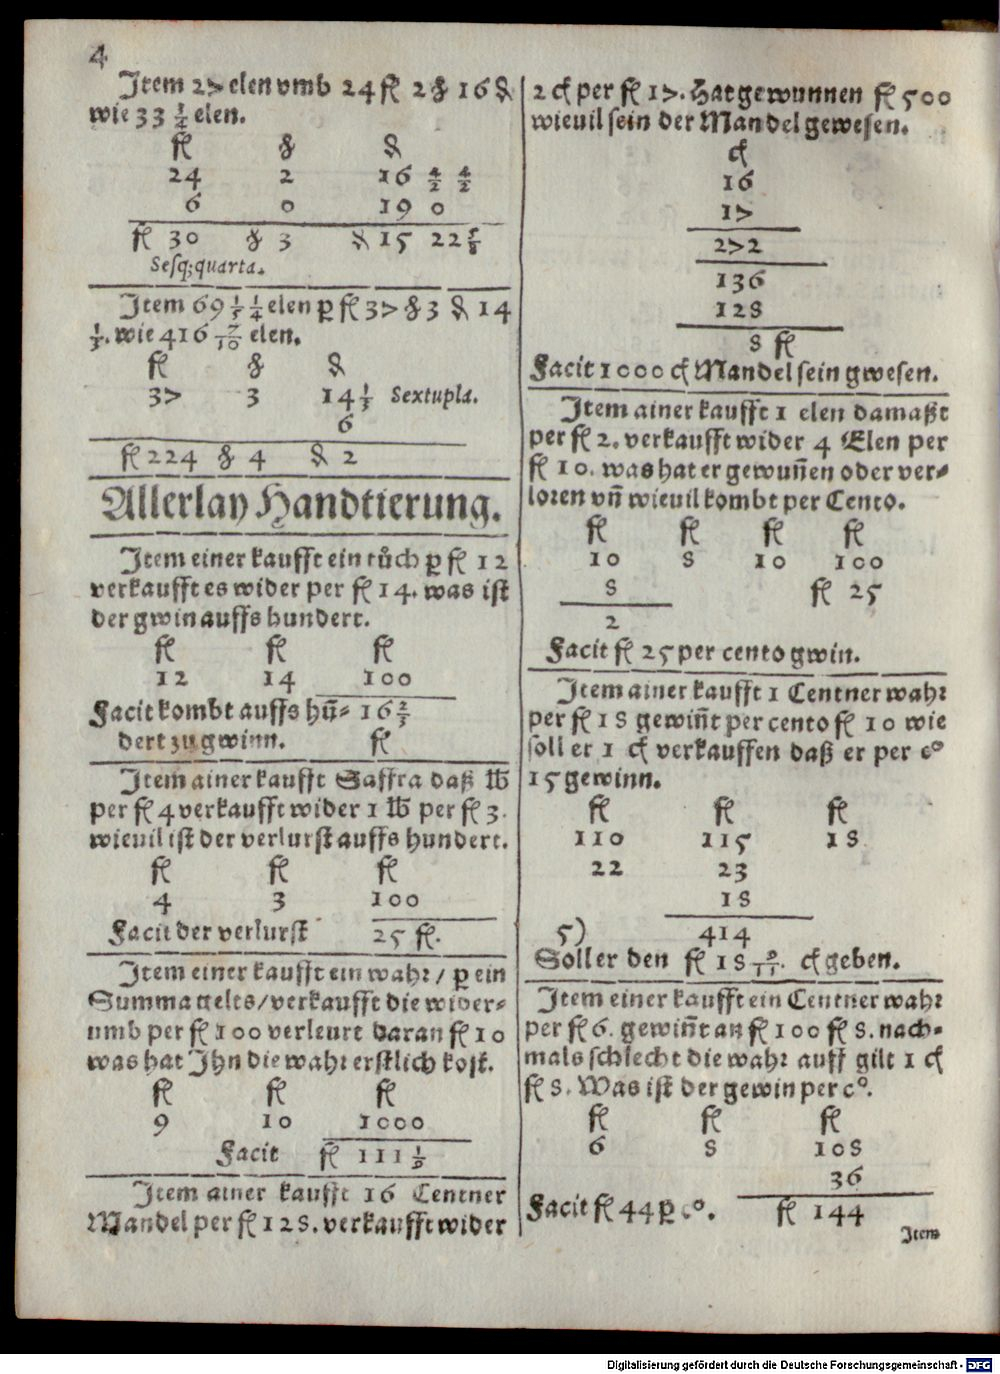 4
Item 27 elen vmb 24 fl 2 ß 16 ₰
wie 33 3/4 elen.
fl ß ₰
24 2 16 4/2 4/2
6 0 19 0
fl 30 ß 3 ₰ 15 22 5/8
Sesq;quarta.
Item 69 1/5 1/4 elen ꝑ fl 37 ß 3 ₰ 14
1/3. wie 416 7/10 elen.
fl ß ₰
37 3 14 1/3 Sextupla.
6
fl 224 ß 4 ₰ 2
Allerlay Handtierung.
Item einer kaufft ein tuͦch ꝑ fl 12
verkaufft es wider per fl 14. was ist
der gwin auffs hundert.
fl fl fl
12 14 100
Facit kombt auffs hū⸗ 16 2/3
dert zu gwinn. fl
Item ainer kaufft Saffra daß ℔
per fl 4 verkaufft wider 1 ℔ per fl 3.
wieuil ist der verlurst auffs hundert.
fl fl fl
4 3 100
Facit der verlurst 25 fl.
Item einer kaufft ein wahr / ꝑ ein
Summa gelts/verkaufft die wider⸗
umb per fl 100 verleurt daran fl 10
was hat Ihn die wahr erstlich kost.
fl fl fl
9 10 1000
Facit fl 111 1/9
Item ainer kaufft 16 Centner
Mandel per fl 128. verkaufft wider
2 ȼ per fl 17. Hat gewunnen fl 500
wieuil sein der Mandel gewesen.
ȼ
16
17
272
136
128
8 fl
Facit 1000 ȼ Mandel sein gwesen.
Item ainer kaufft 1 elen damaßt
per fl 2. verkaufft wider 4 Elen per
fl 10. was hat er gewun̄en oder ver⸗
loren vn̄ wieuil kombt per Cento.
fl fl fl fl
10 8 10 100
8 fl 25
2
Facit fl 25 per cento gwin.
Item ainer kaufft 1 Centner wahr
per fl 18 gewin̄t per cento fl 10 wie
soll er 1 ȼ verkauffen daß er per cº
15 gewinn.
fl fl fl
110 115 18
22 23
18
5) 414
Soll er den fl 18 9/11. ȼ geben.
Item einer kaufft ein Centner wahr
per fl 6. gewin̄t an fl 100 fl 8. nach⸗
mals schlecht die wahr auff gilt 1 ȼ
fl 8. Was ist der gewin per cº.
fl fl fl
6 8 108
36
Facit fl 44 ꝑ cº. fl 144
Item
Digitalisierung gefördert durch die Deutsche Forschungsgemeinschaft - DFG